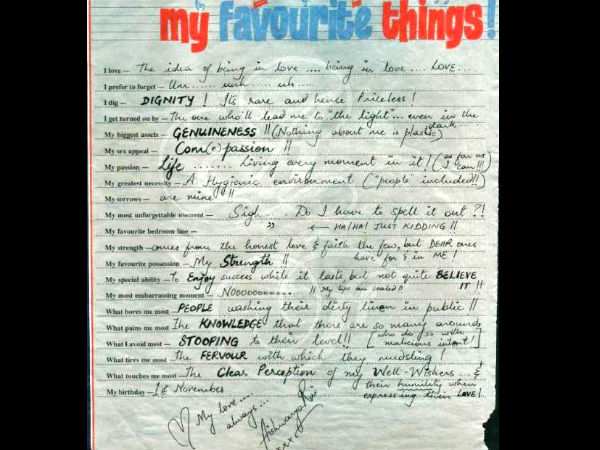 my favourite things!
I love — The idea of being in love .... being in love .... LOVE...
I prefer to forget — Umr...... uuh.... uh....
I dig — DIGNITY! Its rare and hence Priceless!
I get turned on by — The one who'll lead me to "the light"... even in the dark
My biggest assets — GENUINENESS!! (Nothing about me is plastic)
My sex appeal — Com(e)passion!!
My passion — life ....... Living every moment in it! (as far as I can!!!)
My greatest necessity — A Hygienic environment ("people" included!!)
My sorrows — are mine!!
My most unforgettable moment — Sigh.... Do I have to spell it out?!
My favourite bedroom line — " ← HA!HA! JUST KIDDING!!
My strength — comes from the honest love & faith the few, but DEAR ones have for & in ME!
My favourite possession — My Strength!!
My special ability — To Enjoy success while it lasts but not quite BELIEVE IT!!
My most embarrassing moment — Noooooooooo !! My lips are sealed!!
What bores me most — PEOPLE washing their dirty linen in public!!
What pains me most — The KNOWLEDGE that there are so many around
What I avoid most — STOOPING to their level!! [who do so with malicious intent!]
What tires me most — The FERVOUR with which they mudsling!
What touches me most — The Clear Perception of my Well-Wishers...&
their humility when expressing their LOVE!
My birthday — 1st November
My love....
always...
Aishwarya Rai
xxx